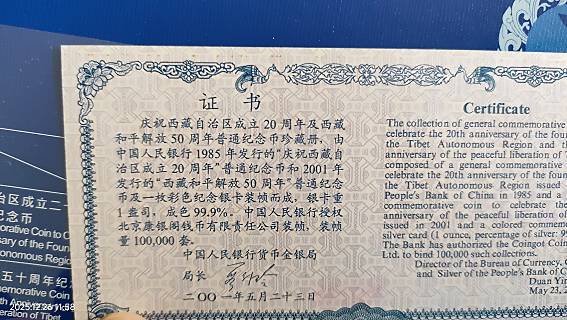 证 书
庆祝西藏自治区成立 20 周年及西藏
和平解放 50 周年普通纪念币珍藏册，由
中国人民银行 1985 年发行的“庆祝西藏自
治区成立 20 周年”普通纪念币和 2001 年
发行的“西藏和平解放 50 周年”普通纪念
币及一枚彩色纪念银卡装帧而成，银卡重
1 盎司，成色 99.9%。中国人民银行授权
北京康银阁钱币有限责任公司装帧，装帧
量 100,000 套。
中国人民银行货币金银局
局长
二〇〇一年五月二十三日
Certificate
The collection of general commemorative
celebrate the 20th anniversary of the foun
the Tibet Autonomous Region and th
anniversary of the peaceful liberation of
composed of a general commemorative
celebrate the 20th anniversary of the foun
the Tibet Autonomous Region issued
People's Bank of China in 1985 and a
commemorative coin to celebrate the
anniversary of the peaceful liberation of
issued in 2001 and a colored commem
silver card (1 ounce, percentage of silver: 99
The Bank has authorized the Coingot Coin
Ltd. to bind 100,000 such collections.
Director of the Bureau of Currency, G
and Silver of the People's Bank of C
Duan Yin
May 23, 2
治区成立二十
纪念币
morative Coin to C
sary of the Foun
onomous Region
五十周年纪
emorative Coin
th Anniversary
ration of Tibet
2025.12.26 11:58